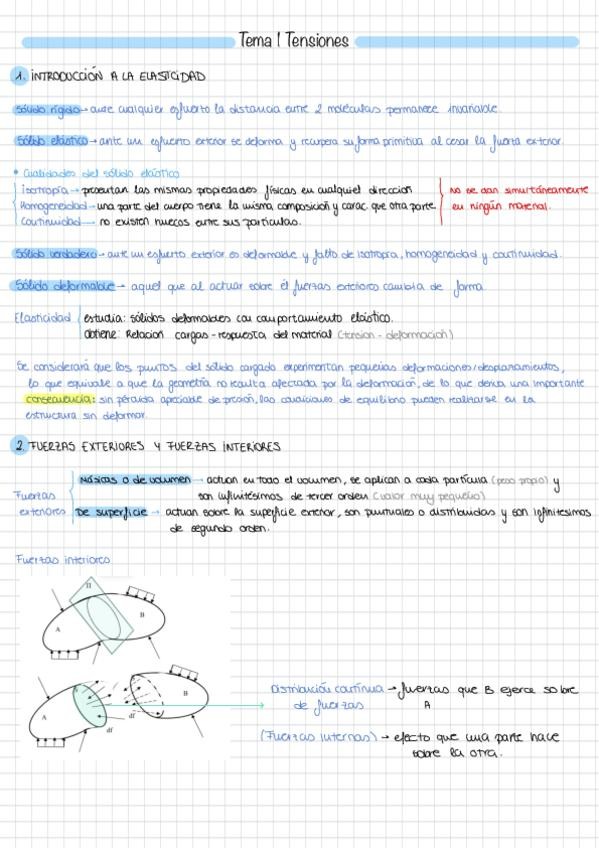 Tema 1 Tensiones
1. INTRODUCCIÓN A LA ELASTICIDAD
Sólido rígido → ante cualquier esfuerzo la distancia entre 2 moléculas permanece invariable.
Sólido elástico → ante un esfuerzo exterior se deforma y recupera su forma primitiva al cesar la fuerza exterior.
* Cualidades del sólido elástico
isotropía → presentan las mismas propiedades físicas en cualquier dirección
Homogeneidad → una parte del cuerpo tiene la misma composición y carac. que otra parte.
Continuidad → no existen huecos entre sus partículas.
No se dan simultáneamente
en ningún material.
Sólido verdadero → ante un esfuerzo exterior es deformable y falto de isotropía, homogeneidad y continuidad.
Sólido deformable → aquel que al actuar sobre él fuerzas exteriores cambia de forma
Elasticidad
estudia: sólidos deformables con comportamiento elástico.
obtiene: Relación cargas-respuesta del material (tensión - deformación)
Se considerará que los puntos del sólido cargado experimentan pequeñas deformaciones/desplazamientos,
lo que equivale a que la geometría no resulta afectada por la deformación, de lo que deriva una importante
consecuencia: sin pérdida apreciable de presión, las condiciones de equilibrio pueden realizarse en la
estructura sin deformar.
2. FUERZAS EXTERIORES Y FUERZAS INTERIORES
Fuerzas
exteriores
Másicas o de volumen → actúan en todo el volumen, se aplican a cada partícula (peso propio) y
son infinitésimos de tercer orden (valor muy pequeño)
De superficie → actúan sobre la superficie exterior, son puntuales o distribuidas y son infinitésimos
de segundo orden.
Fuerzas interiores
Π
A
B
A
B
dF
dF
Distribución continua → fuerzas que B ejerce sobre
de fuerzas A
(Fuerzas internas) → efecto que una parte hace
sobre la otra.